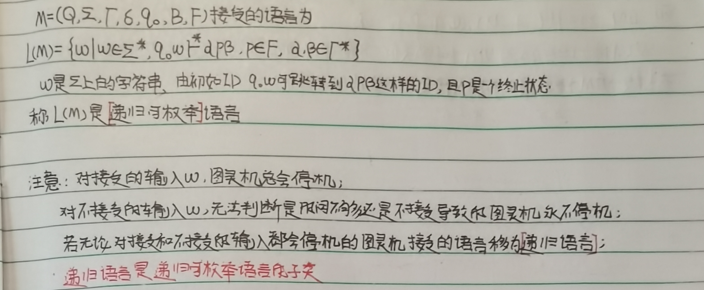 M=(Q,Σ,Γ,δ,q₀,B,F)接受的语言为
L(M)={w|w∈Σ*,q₀w⊢*αpβ,p∈F,α,β∈Γ*}
w是Σ上的字符串,由初始ID q₀w可跳转到αpβ这样的ID,且p是一个终止状态.
称L(M)是[递归可枚举]语言
注意:对接受的输入w,图灵机总会停机;
对不接受的输入w,无法判断是时间不够还是不接受导致的图灵机永不停机;
若无论对接受和不接受的输入都会停机的图灵机接受的语言称为[递归语言];
递归语言是递归可枚举语言的子类